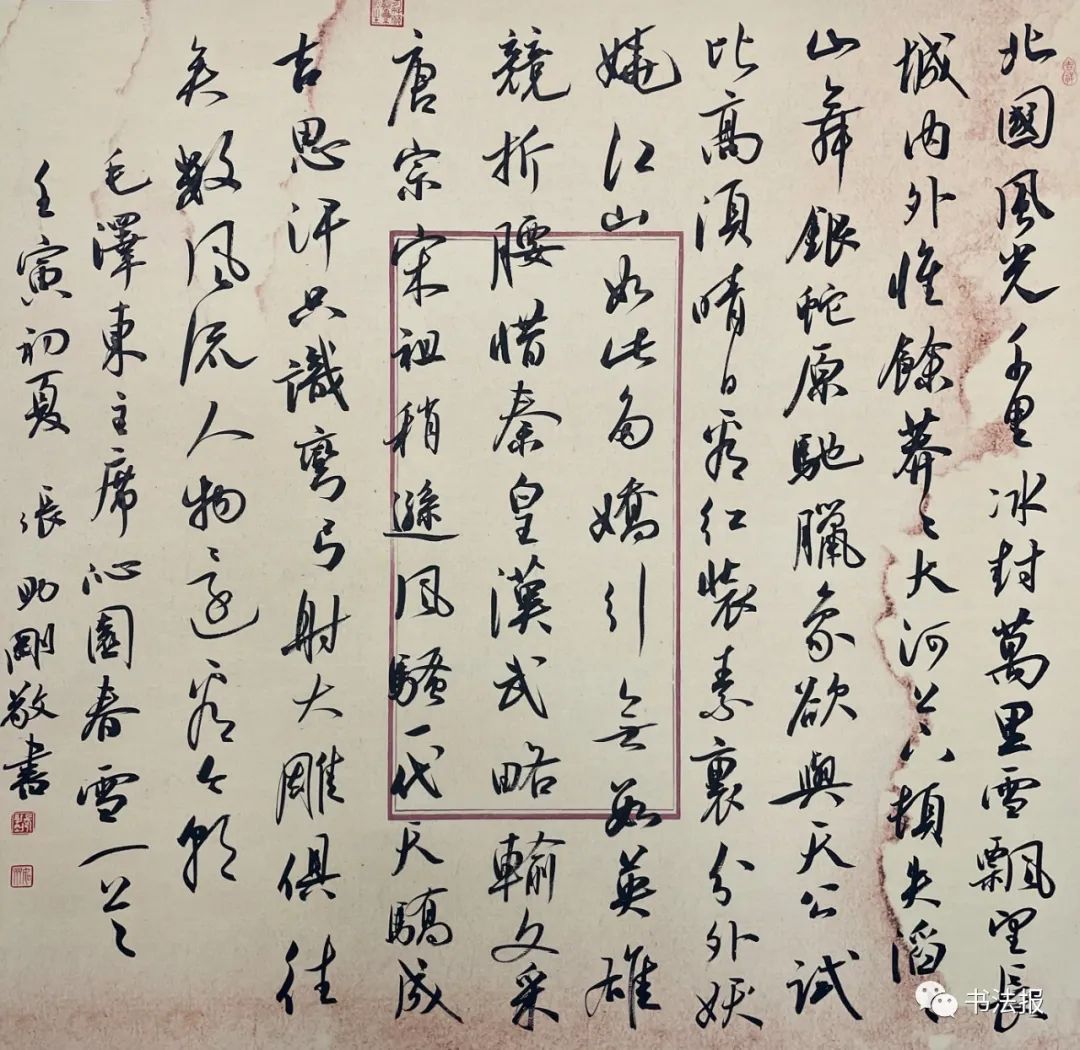 北國風光千里冰封萬里雪飄望長
城内外惟餘莽〻大河上下頓失滔〻
山舞銀蛇原馳臘象欲與天公試
比高須晴日看紅裝素裹分外妖
嬈江山如此多嬌引無數英雄
競折腰惜秦皇漢武略輸文采
唐宗宋祖稍遜風騷一代天驕成
吉思汗只識彎弓射大雕俱往
矣數風流人物還看今朝
毛澤東主席沁園春雪一首
壬寅初夏 張明剛敬書
书法报